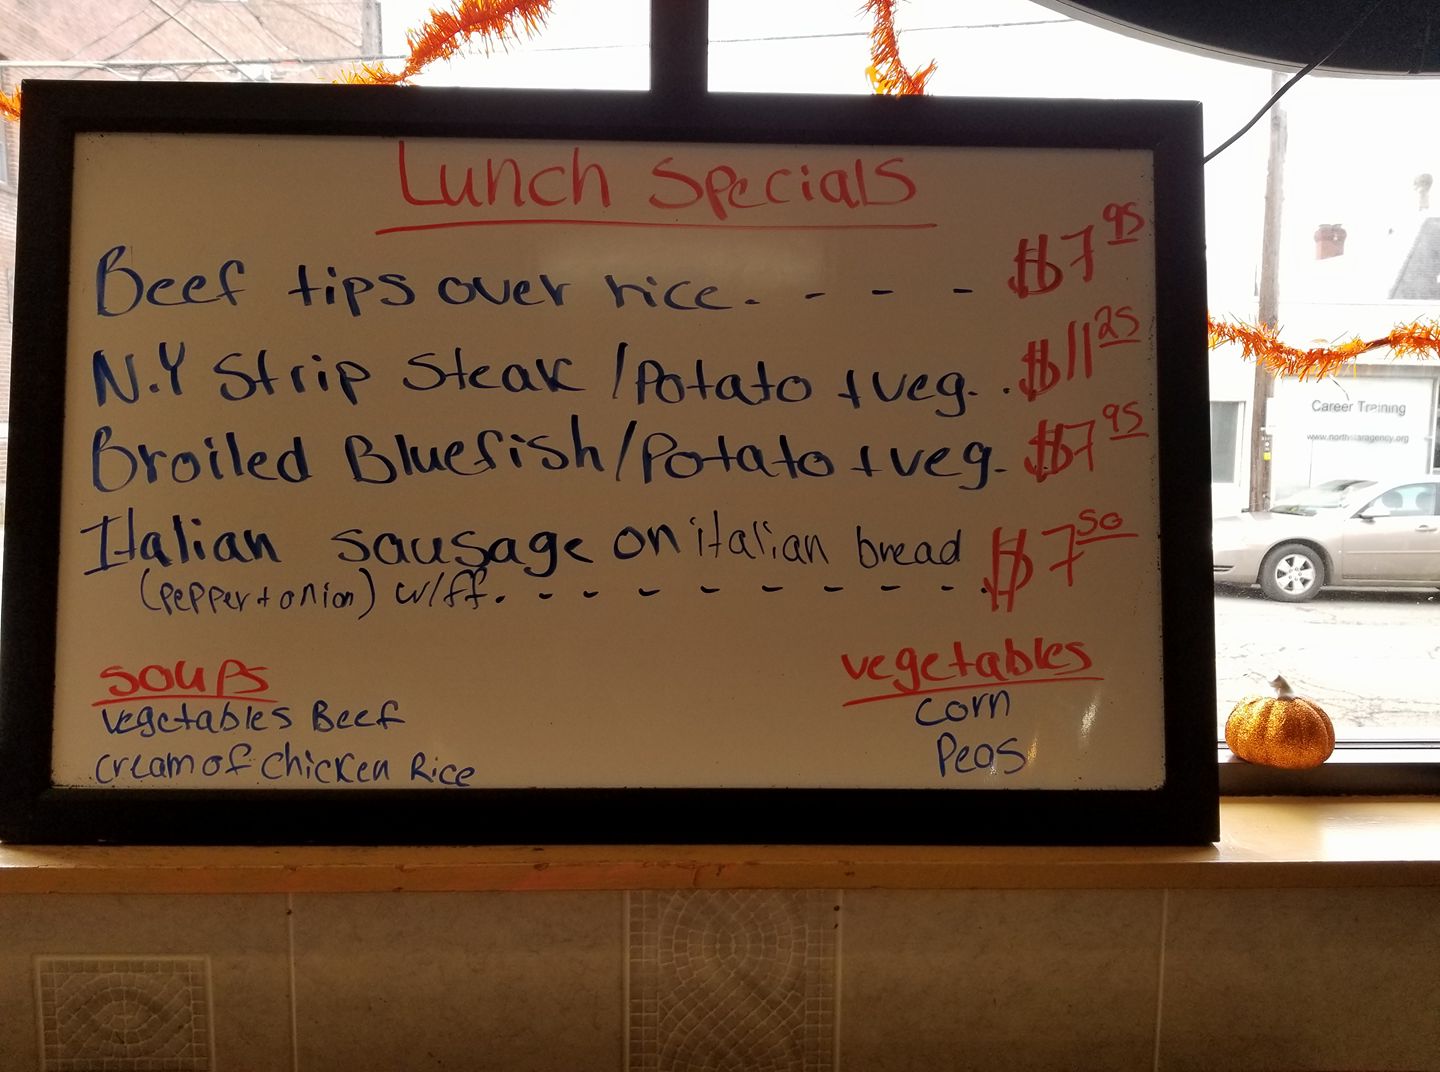 Lunch Specials
Beef tips over rice. - - - $7 95
N.Y Strip Steak / Potato + veg. . $11 25
Broiled Bluefish / Potato + veg. $7 95
Italian sausage on italian bread $7 50
(pepper + onion) w/ff. - - - - - - - - .
Soups
vegetables Beef
cream of chicken Rice
vegetables
corn
Peas
Career Training
www.northstaragency.org